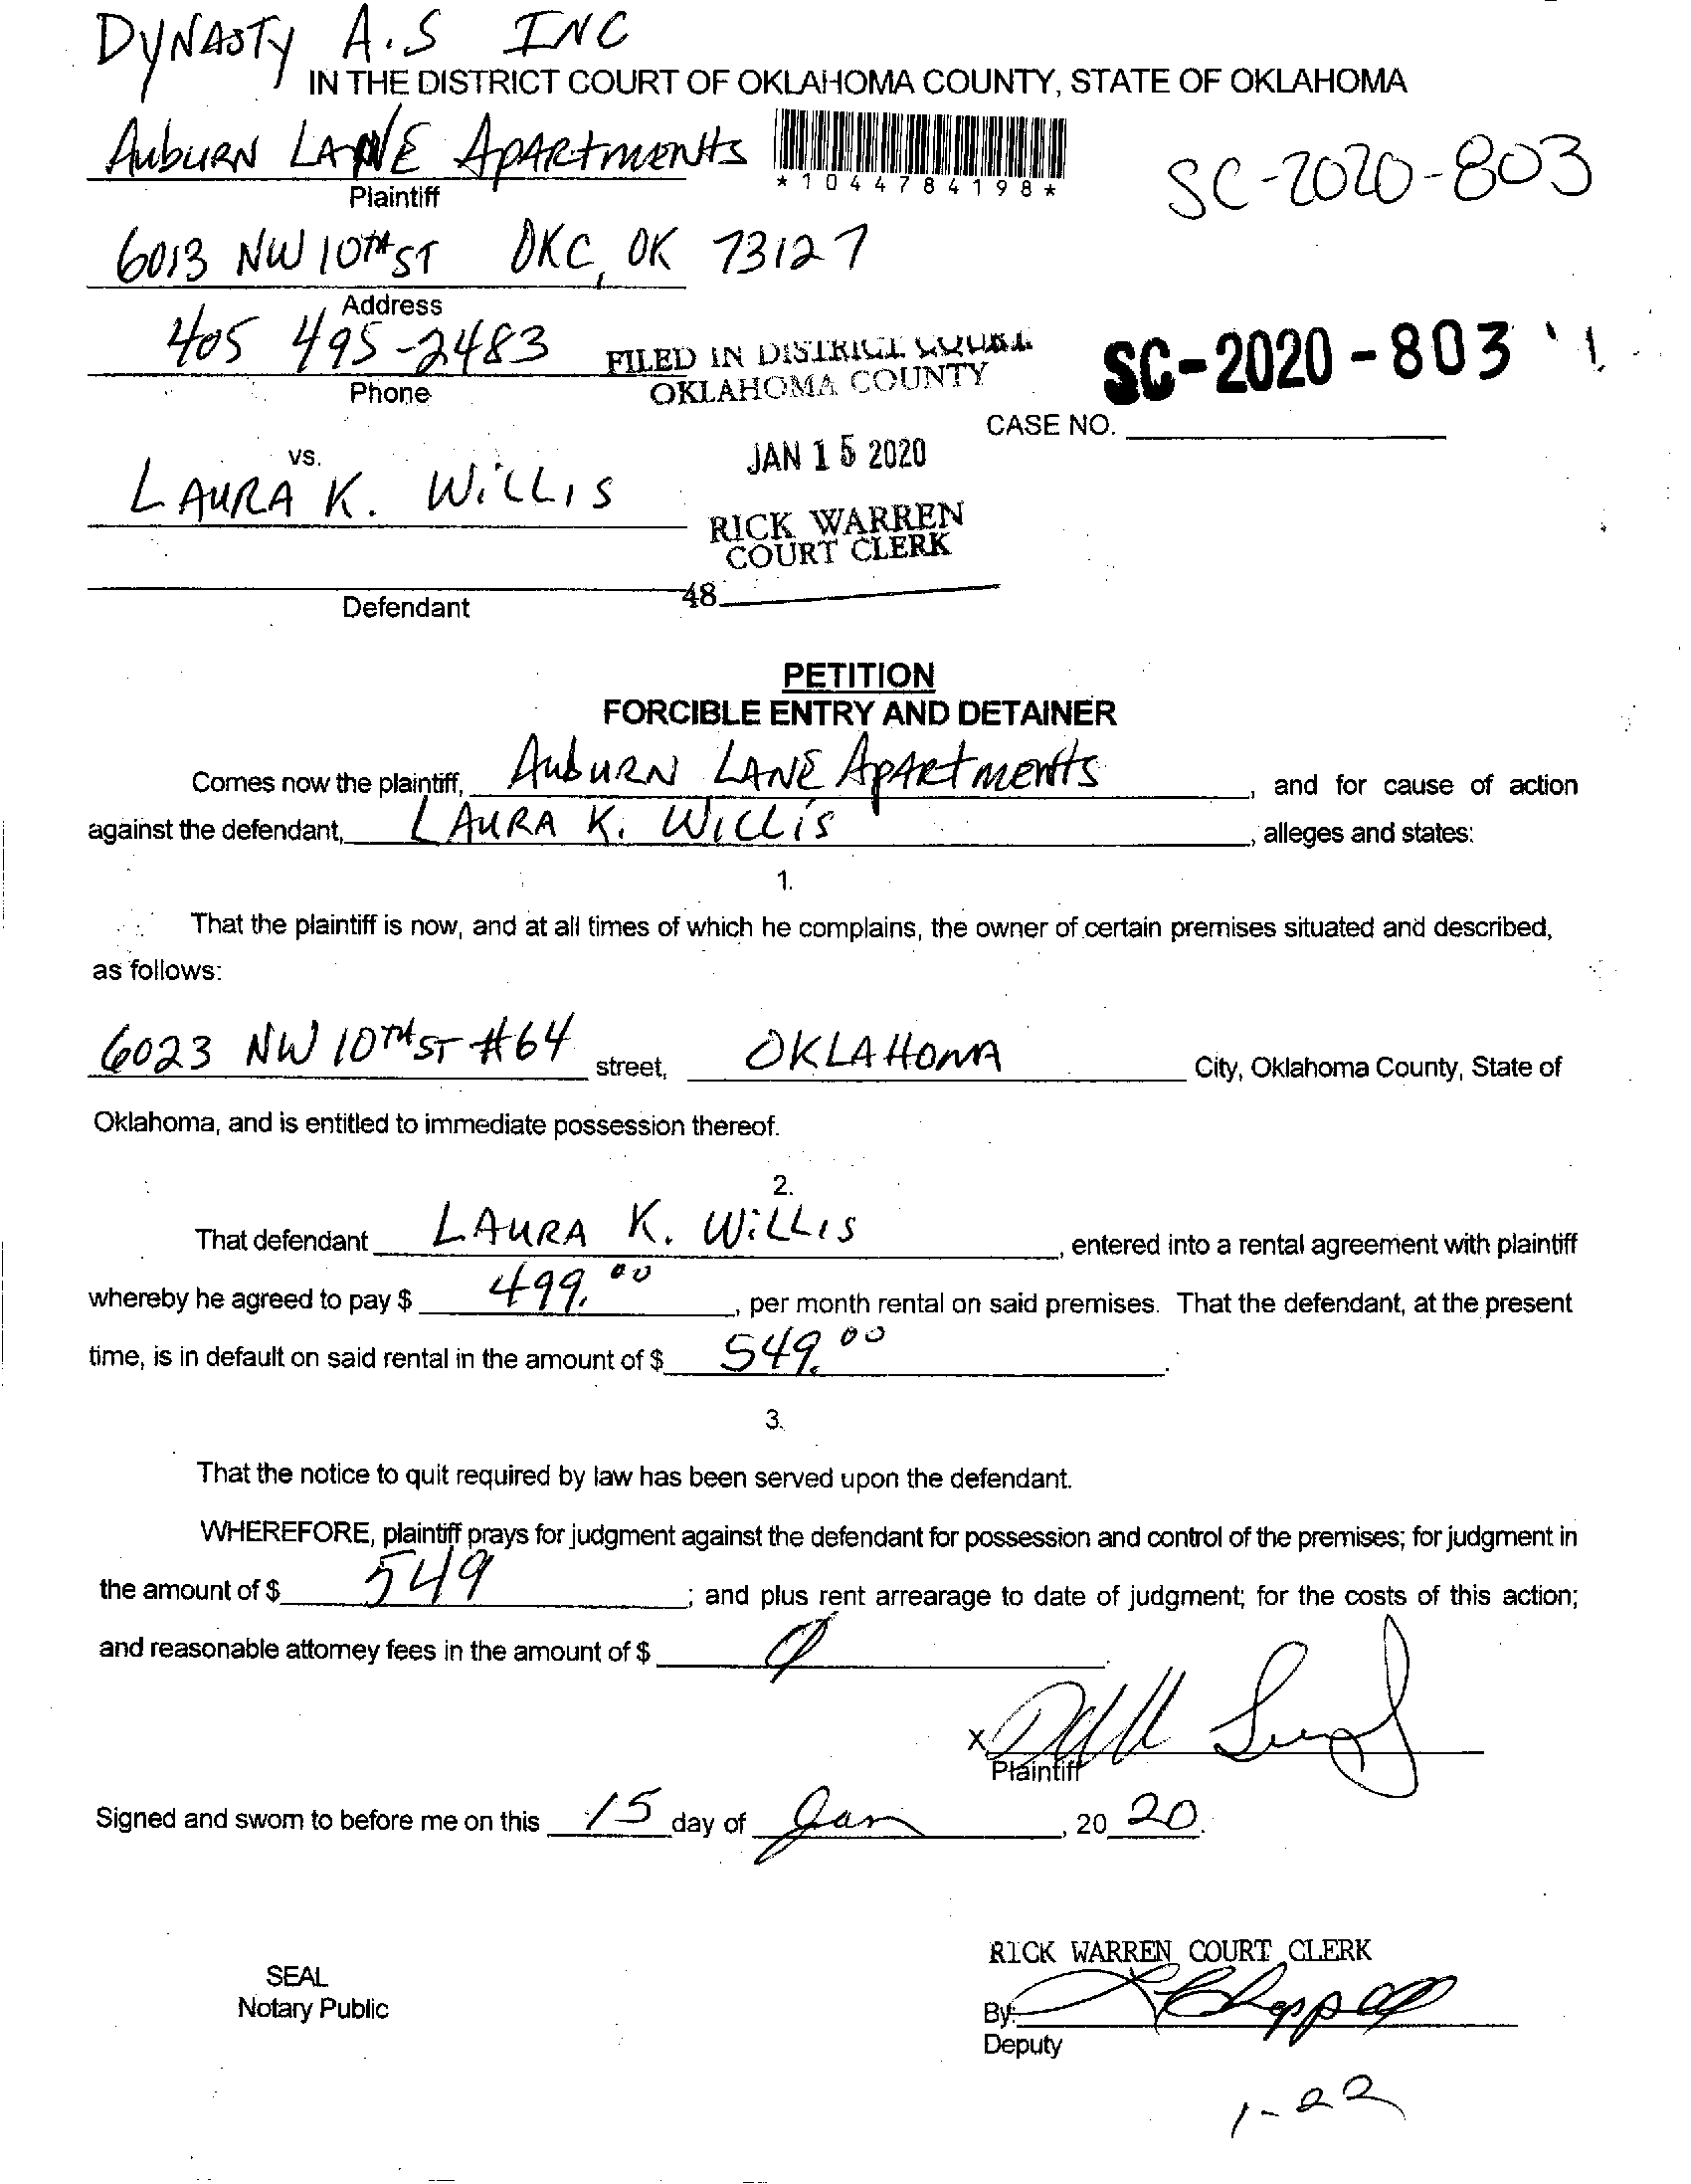 DYNASTY A.S INC
IN THE DISTRICT COURT OF OKLAHOMA COUNTY, STATE OF OKLAHOMA
AUBURN LANE APARTMENTS
*1044784198*
SC-2020-803
Plaintiff
6013 NW 10TH ST OKC, OK 73127
Address
405 495-2483
FILED IN DISTRICT COURT
OKLAHOMA COUNTY
SC-2020-803
Phone
CASE NO.
JAN 15 2020
vs.
LAURA K. WILLIS
RICK WARREN
COURT CLERK
48
Defendant
PETITION
FORCIBLE ENTRY AND DETAINER
Comes now the plaintiff, AUBURN LANE APARTMENTS, and for cause of action
against the defendant, LAURA K. WILLIS, alleges and states:
1.
That the plaintiff is now, and at all times of which he complains, the owner of certain premises situated and described,
as follows:
6023 NW 10TH ST #64 street, OKLAHOMA City, Oklahoma County, State of
Oklahoma, and is entitled to immediate possession thereof.
2.
That defendant LAURA K. WILLIS, entered into a rental agreement with plaintiff
whereby he agreed to pay $ 499.00, per month rental on said premises. That the defendant, at the present
time, is in default on said rental in the amount of $ 549.00.
3.
That the notice to quit required by law has been served upon the defendant.
WHEREFORE, plaintiff prays for judgment against the defendant for possession and control of the premises; for judgment in
the amount of $ 549; and plus rent arrearage to date of judgment; for the costs of this action;
and reasonable attorney fees in the amount of $ 0.
X
Plaintiff
Signed and sworn to before me on this 15 day of Jan, 20 20.
RICK WARREN COURT CLERK
SEAL
Notary Public
By:
Deputy
1-22